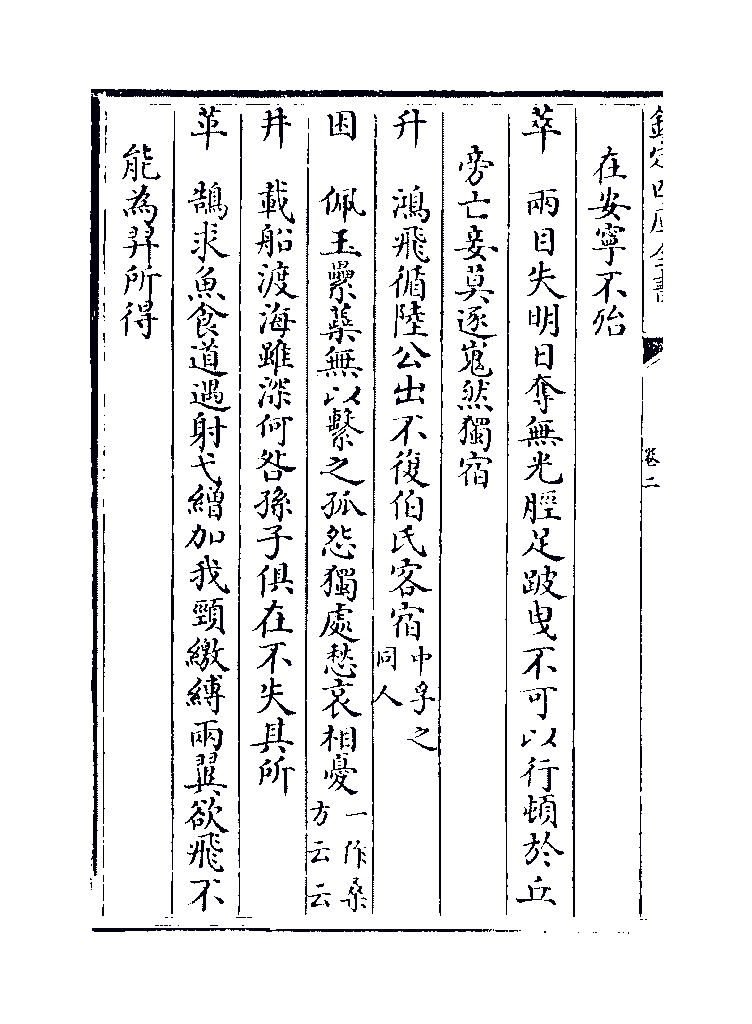 欽定四庫全書
卷二
在安寧不殆
萃　兩目失明日奪無光脛足跛曳不可以行頓於丘
旁亡妾莫逐嵬然獨宿
升　鴻飛循陸公出不復伯氏客宿中孚之同人
困　佩玉蘂蘂無以繫之孤怨獨處愁哀相憂一作桑方云云
井　載船渡海雖深何咎孫子俱在不失其所
革　鵠求魚食道遇射弋繒加我頸繳縛兩翼欲飛不
能為羿所得